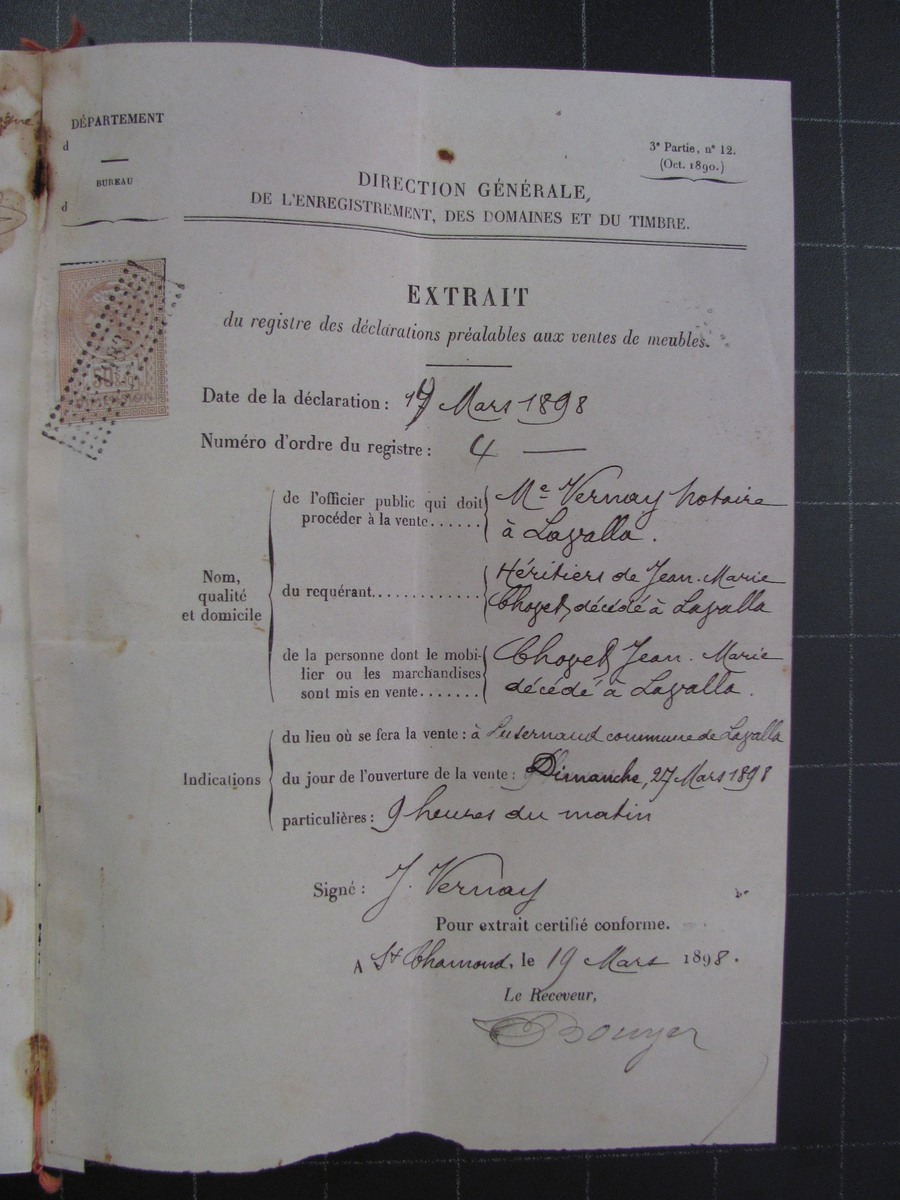 DÉPARTEMENT
d
BUREAU
d
3e Partie, n° 12.
(Oct. 1890.)
DIRECTION GÉNÉRALE,
DE L'ENREGISTREMENT, DES DOMAINES ET DU TIMBRE.
EXTRAIT
du registre des déclarations préalables aux ventes de meubles.
Date de la déclaration : Mars 1898
Numéro d'ordre du registre : 4 —
Nom,
qualité
et domicile
de l'officier public qui doit
procéder à la vente......
Me Vernay notaire
à Lavalla.
du requérant............
Héritiers de Jean-Marie
décédé à Lavalla
de la personne dont le mobi-
lier ou les marchandises
sont mis en vente.......
Jean-Marie
décédé à Lavalla.
Indications
du lieu où se fera la vente : à Luzernaud commune de Lavalla
du jour de l'ouverture de la vente : Dimanche, 27 Mars 1898
particulières : 9 heures du matin
Signé : J. Vernay
Pour extrait certifié conforme.
A St Chamond, le 19 Mars 1898.
Le Receveur,